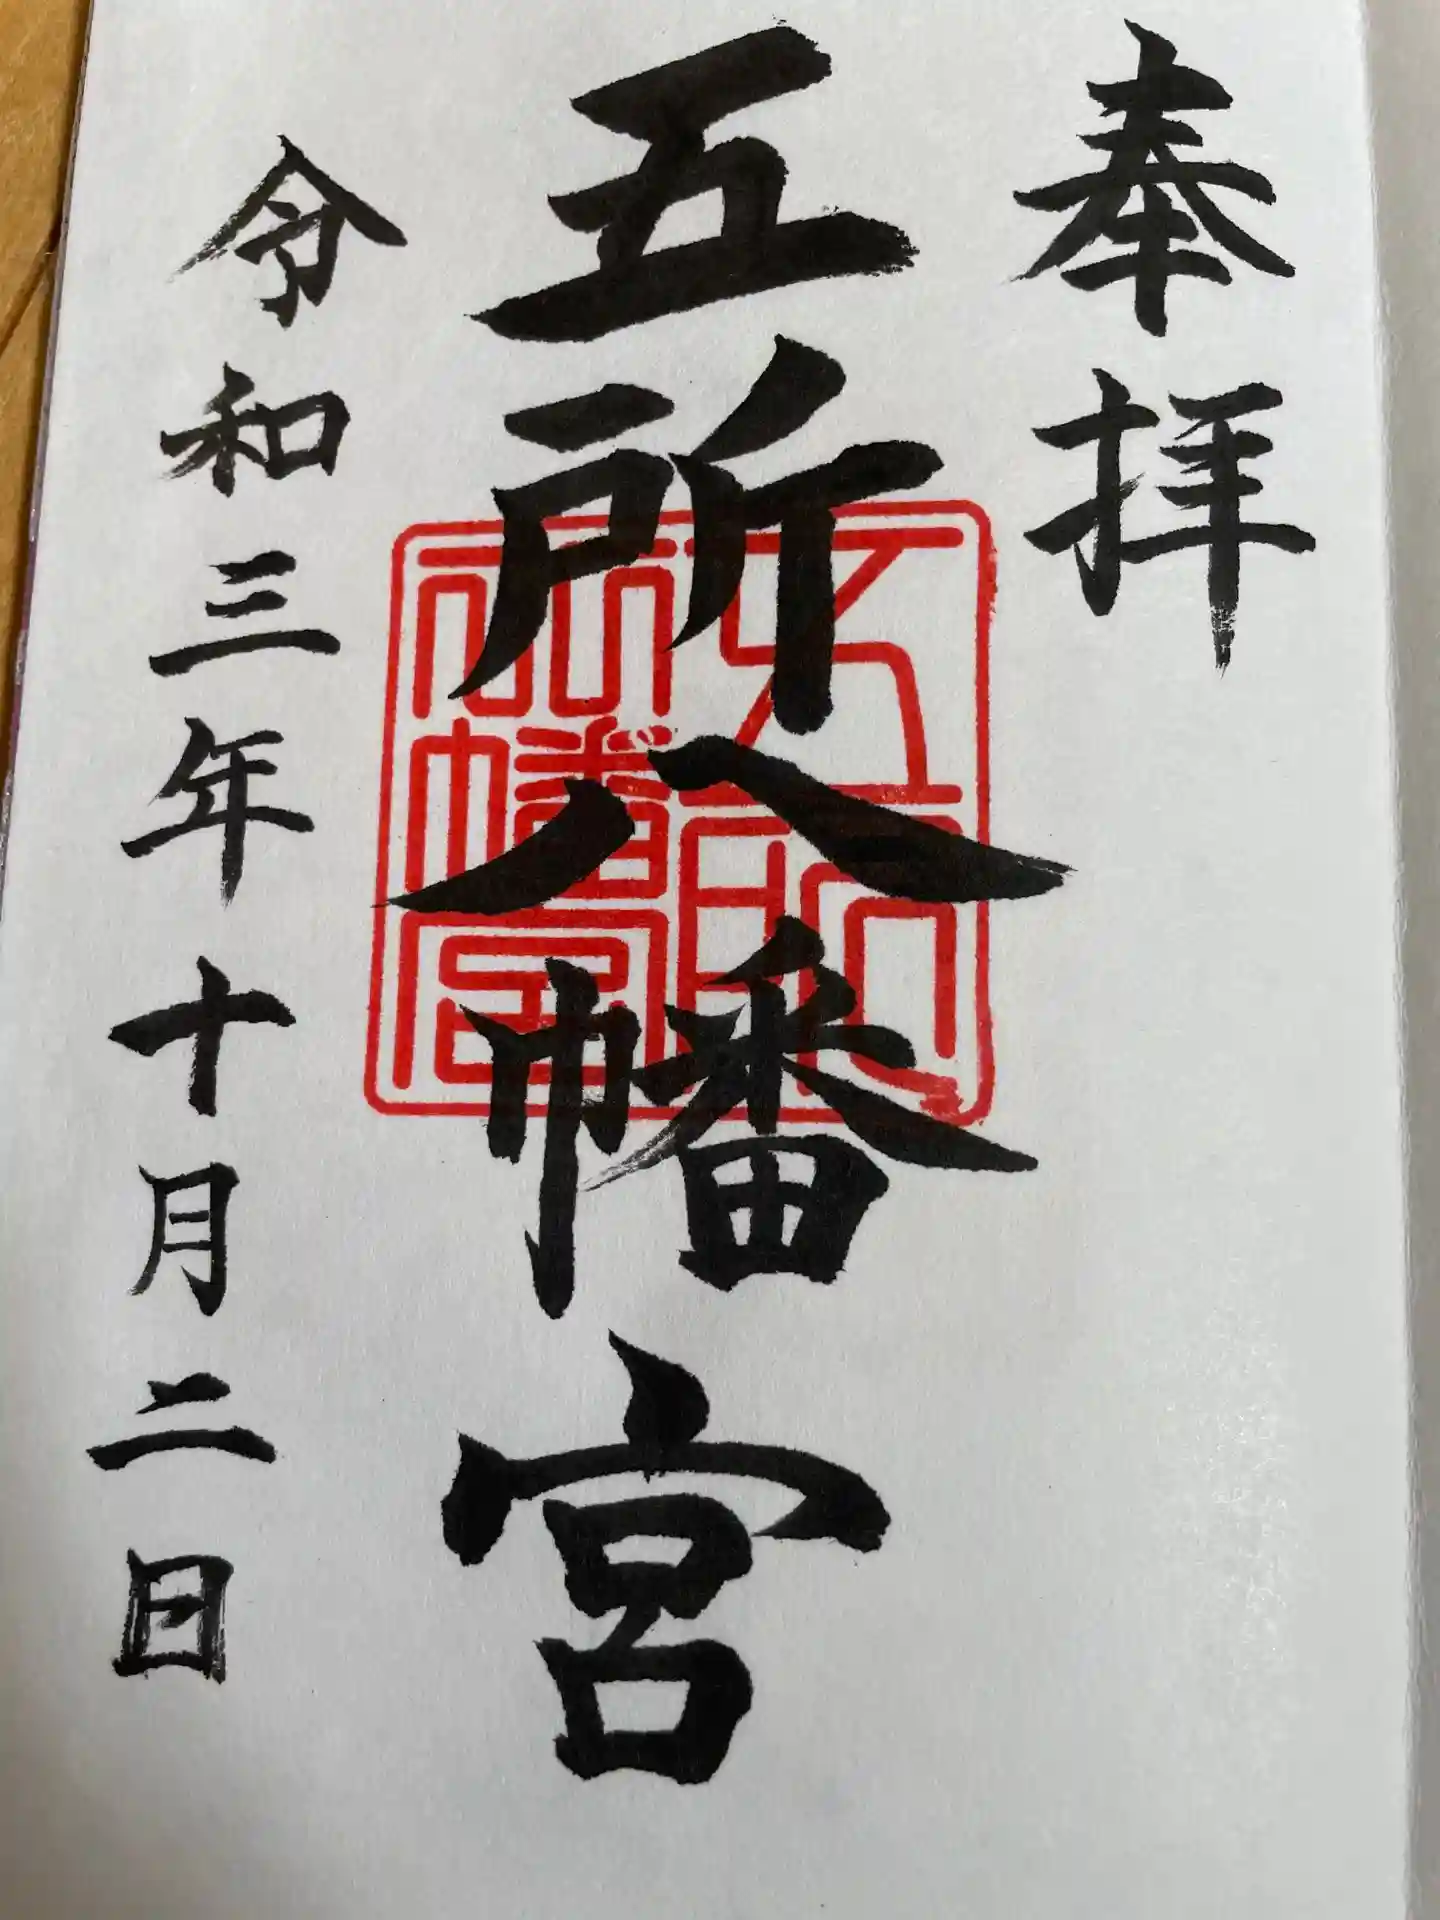 奉拝
五所八幡宮
五所
八幡宮
令和三年十月二日